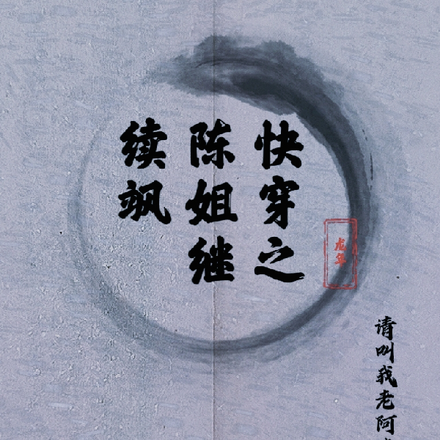 快穿之
陈姐继
续飒
请叫我老阿